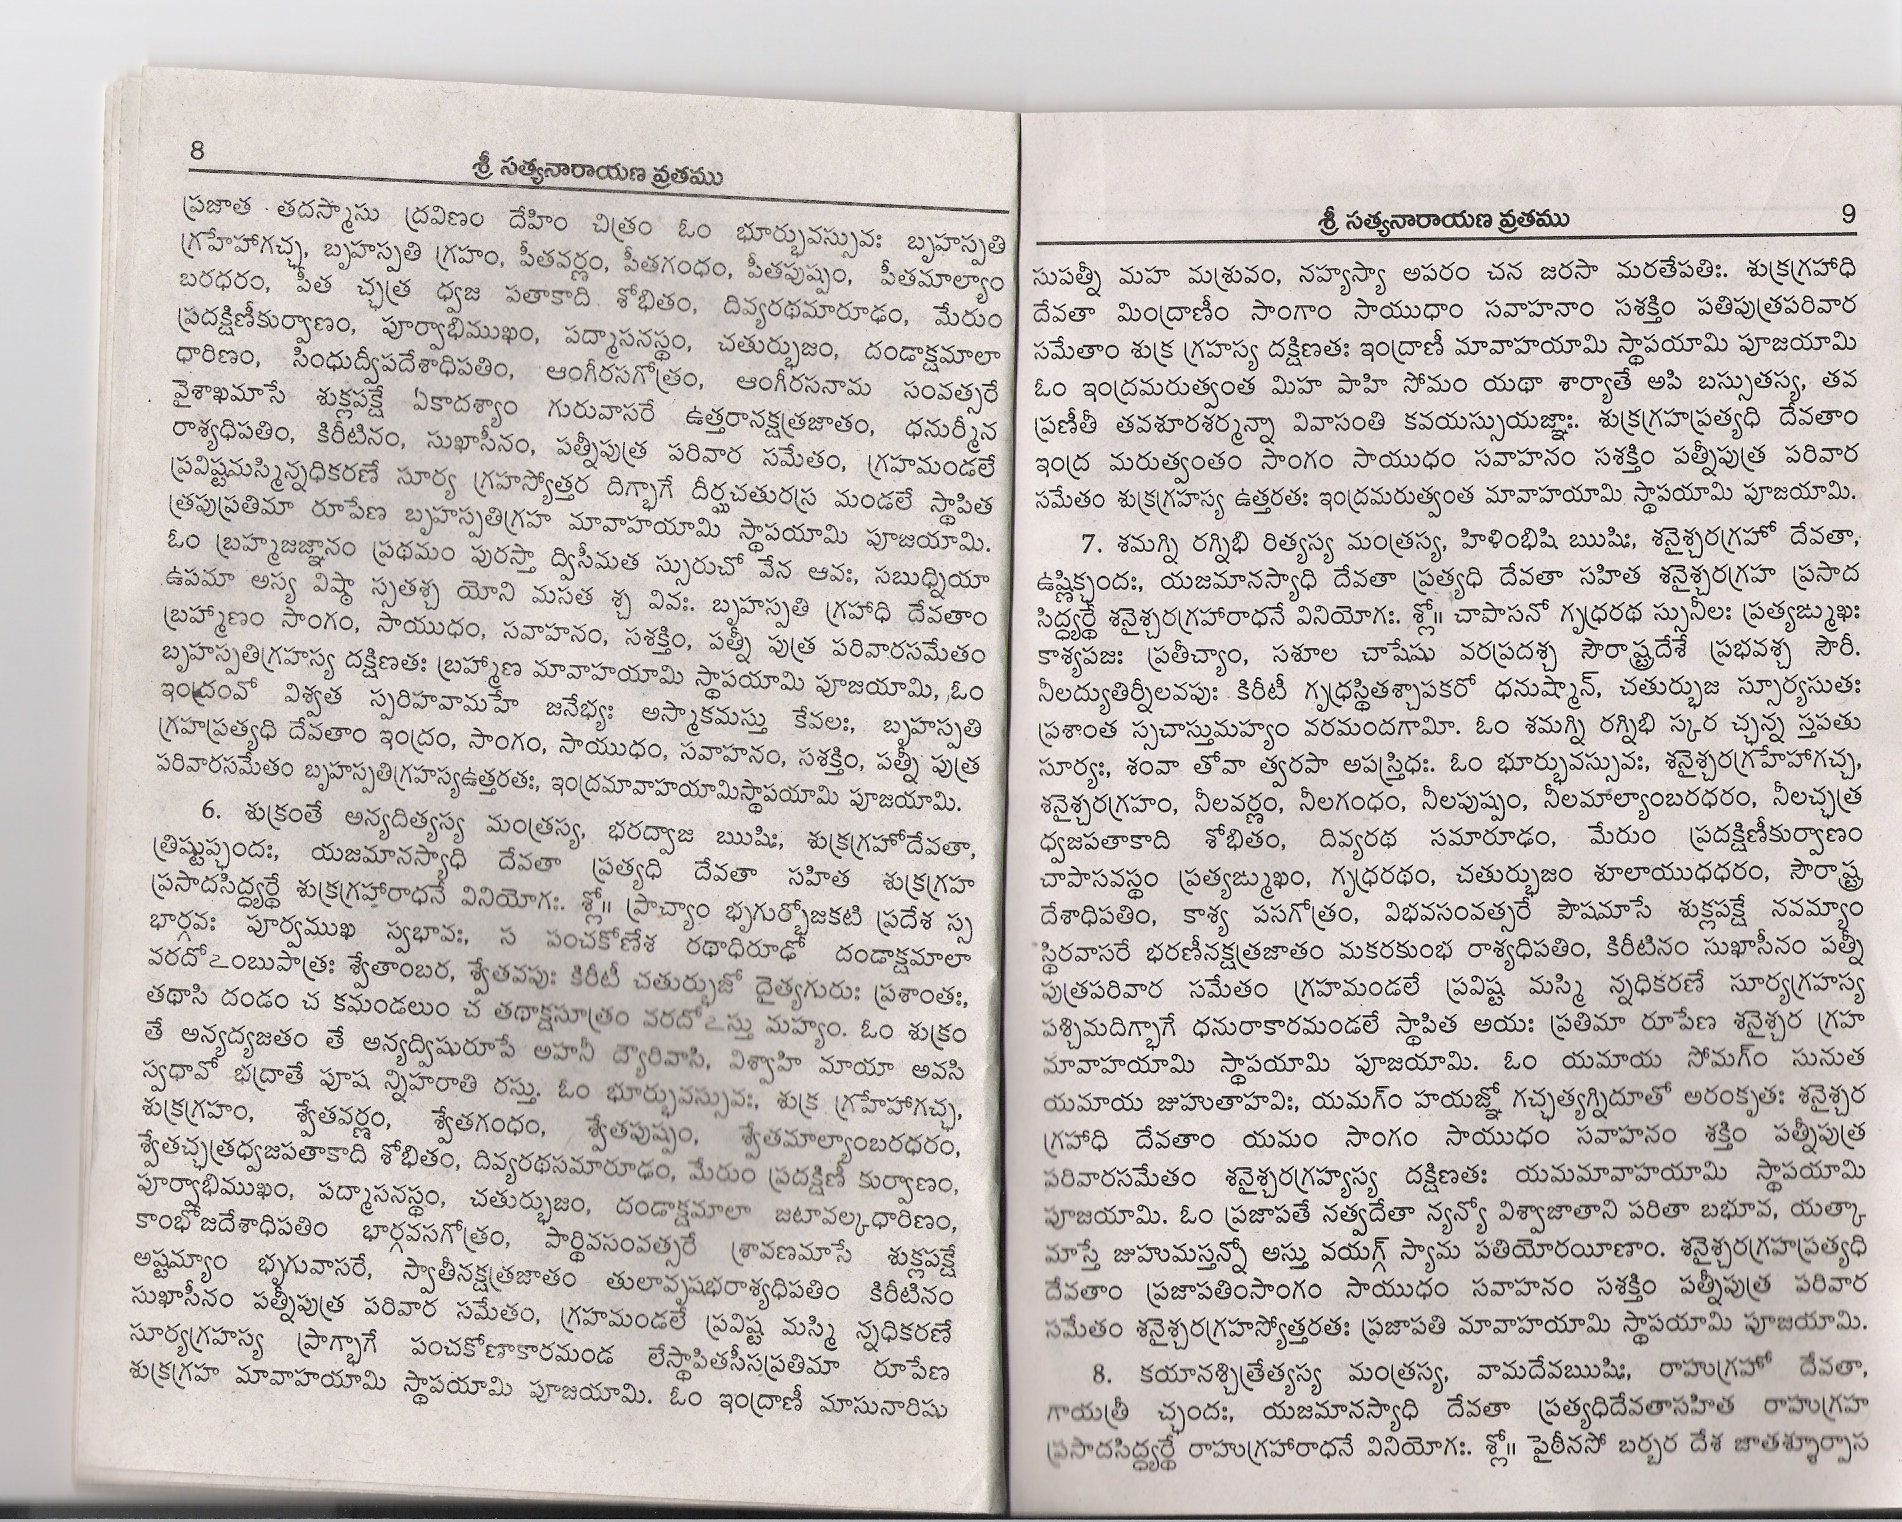 8
శ్రీ సత్యనారాయణ వ్రతము
ప్రజాత తదస్మాసు ద్రవిణం దేహిం చిత్రం ఓం భూర్భువస్సువః బృహస్పతి
గ్రహేహాగచ్ఛ, బృహస్పతి గ్రహం, పీతవర్ణం, పీతగంధం, పీతపుష్పం, పీతమాల్యాం
బరధరం, పీత చ్ఛత్ర ధ్వజ పతాకాది శోభితం, దివ్యరథమారూఢం, మేరుం
ప్రదక్షిణీకుర్వాణం, పూర్వాభిముఖం, పద్మాసనస్థం, చతుర్భుజం, దండాక్షమాలా
ధారిణం, సింధుద్వీపదేశాధిపతిం, ఆంగీరసగోత్రం, ఆంగీరసనామ సంవత్సరే
వైశాఖమాసే శుక్లపక్షే ఏకాదశ్యాం గురువాసరే ఉత్తరానక్షత్రజాతం, ధనుర్మీన
రాశ్యధిపతిం, కిరీటినం, సుఖాసీనం, పత్నీపుత్ర పరివార సమేతం, గ్రహమండలే
ప్రవిష్టమస్మిన్నధికరణే సూర్య గ్రహస్యోత్తర దిగ్భాగే దీర్ఘచతురస్ర మండలే స్థాపిత
త్రపుప్రతిమా రూపేణ బృహస్పతిగ్రహ మావాహయామి స్థాపయామి పూజయామి.
ఓం బ్రహ్మజజ్ఞానం ప్రథమం పురస్తా ద్విసీమత స్సురుచో వేన ఆవః, సబుధ్నియా
ఉపమా అస్య విష్ఠా స్సతశ్చ యోని మసత శ్చ వివః. బృహస్పతి గ్రహాధి దేవతాం
బ్రహ్మాణం సాంగం, సాయుధం, సవాహనం, సశక్తిం, పత్నీ పుత్ర పరివారసమేతం
బృహస్పతిగ్రహస్య దక్షిణతః బ్రహ్మాణ మావాహయామి స్థాపయామి పూజయామి, ఓం
ఇంద్రంవో విశ్వత స్పరిహవామహే జనేభ్యః అస్మాకమస్తు కేవలః, బృహస్పతి
గ్రహప్రత్యధి దేవతాం ఇంద్రం, సాంగం, సాయుధం, సవాహనం, సశక్తిం, పత్నీ పుత్ర
పరివారసమేతం బృహస్పతిగ్రహస్యఉత్తరతః, ఇంద్రమావాహయామిస్థాపయామి పూజయామి.
6. శుక్రంతే అన్యదిత్యస్య మంత్రస్య, భరద్వాజ ఋషిః, శుక్రగ్రహోదేవతా,
త్రిష్టుప్ఛందః, యజమానస్యాధి దేవతా ప్రత్యధి దేవతా సహిత శుక్రగ్రహ
ప్రసాదసిద్ధ్యర్థే శుక్రగ్రహారాధనే వినియోగః. శ్లో॥ ప్రాచ్యాం భృగుర్భోజకటి ప్రదేశ స్స
భార్గవః పూర్వముఖ స్వభావః, స పంచకోణేశ రథాధిరూఢో దండాక్షమాలా
వరదోఽంబుపాత్రః శ్వేతాంబర, శ్వేతవపుః కిరీటీ చతుర్భుజో దైత్యగురుః ప్రశాంతః,
తథాసి దండం చ కమండలుం చ తథాక్షసూత్రం వరదోఽస్తు మహ్యం. ఓం శుక్రం
తే అన్యద్యజతం తే అన్యద్విషురూపే అహనీ ద్యౌరివాసి, విశ్వాహి మాయా అవసి
స్వధావో భద్రాతే పూష న్నిహరాతి రస్తు. ఓం భూర్భువస్సువః, శుక్ర గ్రహేహాగచ్ఛ,
శుక్రగ్రహం, శ్వేతవర్ణం, శ్వేతగంధం, శ్వేతపుష్పం, శ్వేతమాల్యాంబరధరం,
శ్వేతచ్ఛత్రధ్వజపతాకాది శోభితం, దివ్యరథసమారూఢం, మేరుం ప్రదక్షిణీ కుర్వాణం,
పూర్వాభిముఖం, పద్మాసనస్థం, చతుర్భుజం, దండాక్షమాలా జటావల్కధారిణం,
కాంభోజదేశాధిపతిం భార్గవసగోత్రం, పార్థివసంవత్సరే శ్రావణమాసే శుక్లపక్షే
అష్టమ్యాం భృగువాసరే, స్వాతీనక్షత్రజాతం తులావృషభరాశ్యధిపతిం కిరీటినం
సుఖాసీనం పత్నీపుత్ర పరివార సమేతం, గ్రహమండలే ప్రవిష్ట మస్మి న్నధికరణే
సూర్యగ్రహస్య ప్రాగ్భాగే పంచకోణాకారమండ లేస్థాపితసీసప్రతిమా రూపేణ
శుక్రగ్రహ మావాహయామి స్థాపయామి పూజయామి. ఓం ఇంద్రాణీ మాసునారిషు
శ్రీ సత్యనారాయణ వ్రతము
9
సుపత్నీ మహ మశ్రువం, నహ్యస్యా అపరం చన జరసా మరతేపతిః. శుక్రగ్రహాధి
దేవతా మింద్రాణీం సాంగాం సాయుధాం సవాహనాం సశక్తిం పతిపుత్రపరివార
సమేతాం శుక్ర గ్రహస్య దక్షిణతః ఇంద్రాణీ మావాహయామి స్థాపయామి పూజయామి
ఓం ఇంద్రమరుత్వంత మిహ పాహి సోమం యథా శార్యాతే అపి బస్సుతస్య, తవ
ప్రణీతీ తవశూరశర్మన్నా వివాసంతి కవయస్సుయజ్ఞాః. శుక్రగ్రహప్రత్యధి దేవతాం
ఇంద్ర మరుత్వంతం సాంగం సాయుధం సవాహనం సశక్తిం పత్నీపుత్ర పరివార
సమేతం శుక్రగ్రహస్య ఉత్తరతః ఇంద్రమరుత్వంత మావాహయామి స్థాపయామి పూజయామి.
7. శమగ్ని రగ్నిభి రిత్యస్య మంత్రస్య, హిళింభిషి ఋషిః, శనైశ్చరగ్రహో దేవతా,
ఉష్ణిక్ఛందః, యజమానస్యాధి దేవతా ప్రత్యధి దేవతా సహిత శనైశ్చరగ్రహ ప్రసాద
సిద్ధ్యర్థే శనైశ్చరగ్రహారాధనే వినియోగః. శ్లో॥ చాపాసనో గృధ్రరథ స్సునీలః ప్రత్యఙ్ముఖః
కాశ్యపజః ప్రతీచ్యాం, సశూల చాషేషు వరప్రదశ్చ సౌరాష్ట్రదేశే ప్రభవశ్చ సౌరీ.
నీలద్యుతిర్నీలవపుః కిరీటీ గృధ్రస్థితశ్చాపకరో ధనుష్మాన్, చతుర్భుజ స్సూర్యసుతః
ప్రశాంత స్సచాస్తుమహ్యం వరమందగామీ. ఓం శమగ్ని రగ్నిభి స్కర చ్ఛన్న స్తపతు
సూర్యః, శంవా తోవా త్వరపా అపస్త్రిధః. ఓం భూర్భువస్సువః, శనైశ్చరగ్రహేహాగచ్ఛ,
శనైశ్చరగ్రహం, నీలవర్ణం, నీలగంధం, నీలపుష్పం, నీలమాల్యాంబరధరం, నీలచ్ఛత్ర
ధ్వజపతాకాది శోభితం, దివ్యరథ సమారూఢం, మేరుం ప్రదక్షిణీకుర్వాణం
చాపాసవస్థం ప్రత్యఙ్ముఖం, గృధ్రరథం, చతుర్భుజం శూలాయుధధరం, సౌరాష్ట్ర
దేశాధిపతిం, కాశ్య పసగోత్రం, విభవసంవత్సరే పౌషమాసే శుక్లపక్షే నవమ్యాం
స్థిరవాసరే భరణీనక్షత్రజాతం మకరకుంభ రాశ్యధిపతిం, కిరీటినం సుఖాసీనం పత్నీ
పుత్రపరివార సమేతం గ్రహమండలే ప్రవిష్ట మస్మి న్నధికరణే సూర్యగ్రహస్య
పశ్చిమదిగ్భాగే ధనురాకారమండలే స్థాపిత అయః ప్రతిమా రూపేణ శనైశ్చర గ్రహ
మావాహయామి స్థాపయామి పూజయామి. ఓం యమాయ సోమగ్ం సునుత
యమాయ జుహుతాహవిః, యమగ్ం హయజ్ఞో గచ్ఛత్యగ్నిదూతో అరంకృతః శనైశ్చర
గ్రహాధి దేవతాం యమం సాంగం సాయుధం సవాహనం శక్తిం పత్నీపుత్ర
పరివారసమేతం శనైశ్చరగ్రహ్యస్య దక్షిణతః యమమావాహయామి స్థాపయామి
పూజయామి. ఓం ప్రజాపతే నత్వదేతా న్యన్యో విశ్వాజాతాని పరితా బభూవ, యత్కా
మాస్తే జుహుమస్తన్నో అస్తు వయగ్గ్ స్యామ పతియోరయీణాం. శనైశ్చరగ్రహప్రత్యధి
దేవతాం ప్రజాపతింసాంగం సాయుధం సవాహనం సశక్తిం పత్నీపుత్ర పరివార
సమేతం శనైశ్చరగ్రహస్యోత్తరతః ప్రజాపతి మావాహయామి స్థాపయామి పూజయామి.
8. కయానశ్చిత్రేత్యస్య మంత్రస్య, వామదేవఋషిః, రాహుగ్రహో దేవతా,
గాయత్రీ చ్ఛందః, యజమానస్యాధి దేవతా ప్రత్యధిదేవతాసహిత రాహుగ్రహ
ప్రసాదసిద్ధ్యర్థే రాహుగ్రహారాధనే వినియోగః. శ్లో॥ పైఠీనసో బర్బర దేశ జాతశ్శూర్పాస